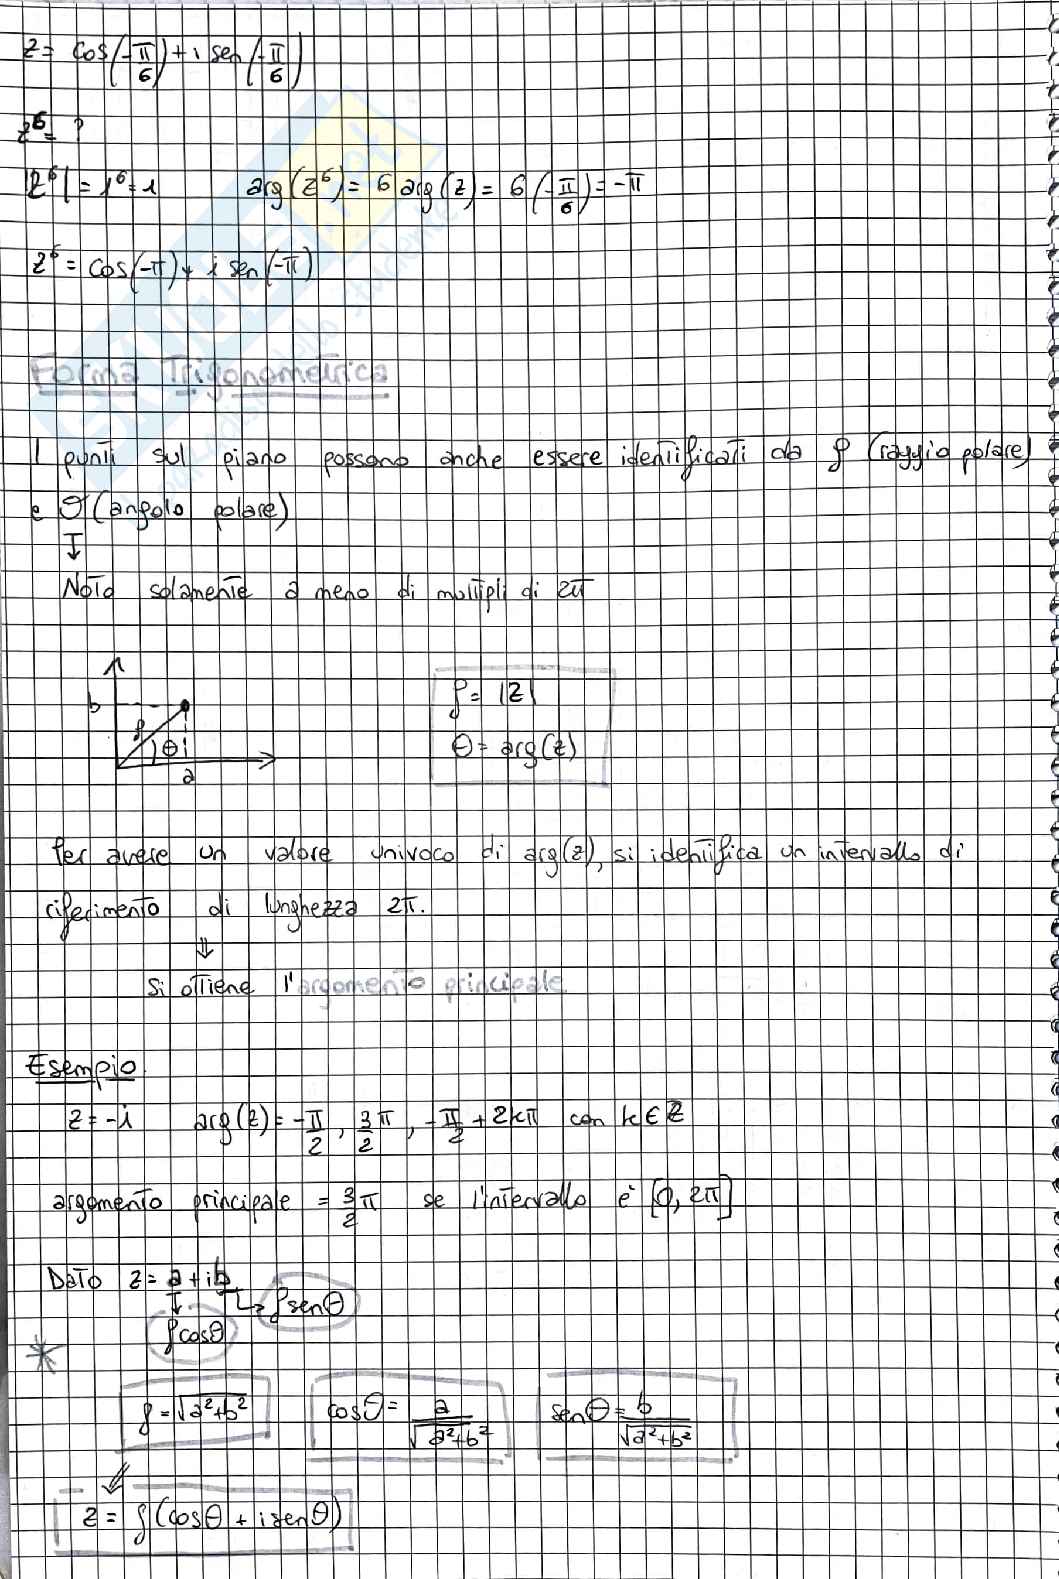 z = cos(-π/6) + i sen(-π/6)
z⁶ = ?
|z⁶| = 1⁶ = 1 arg(z⁶) = 6 arg(z) = 6(-π/6) = -π
z⁶ = cos(-π) + i sen(-π)
Forma Trigonometrica
I punti sul piano possono anche essere identificati da ρ (raggio polare)
e θ (angolo polare)
↓
Noto solamente a meno di multipli di 2π
b ρ θ a
ρ = |z|
θ = arg(z)
Per avere un valore univoco di arg(z), si identifica un intervallo di
riferimento di lunghezza 2π.
⇓
Si ottiene l'argomento principale
Esempio
z = -i arg(z) = -π/2, 3/2 π, -π/2 + 2kπ con k ∈ Z
argomento principale = 3/2 π se l'intervallo è [0, 2π]
Dato z = a + ib
↳ ρsenθ
↓
ρcosθ
*
ρ = √a²+b² cosθ = a/√a²+b² senθ = b/√a²+b²
⇓
z = ρ(cosθ + i senθ)